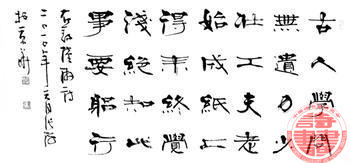 古人學問
無遺力少
壯工夫老
始成紙上
得来終覺
淺絕知此
事要躬行
二〇一〇年